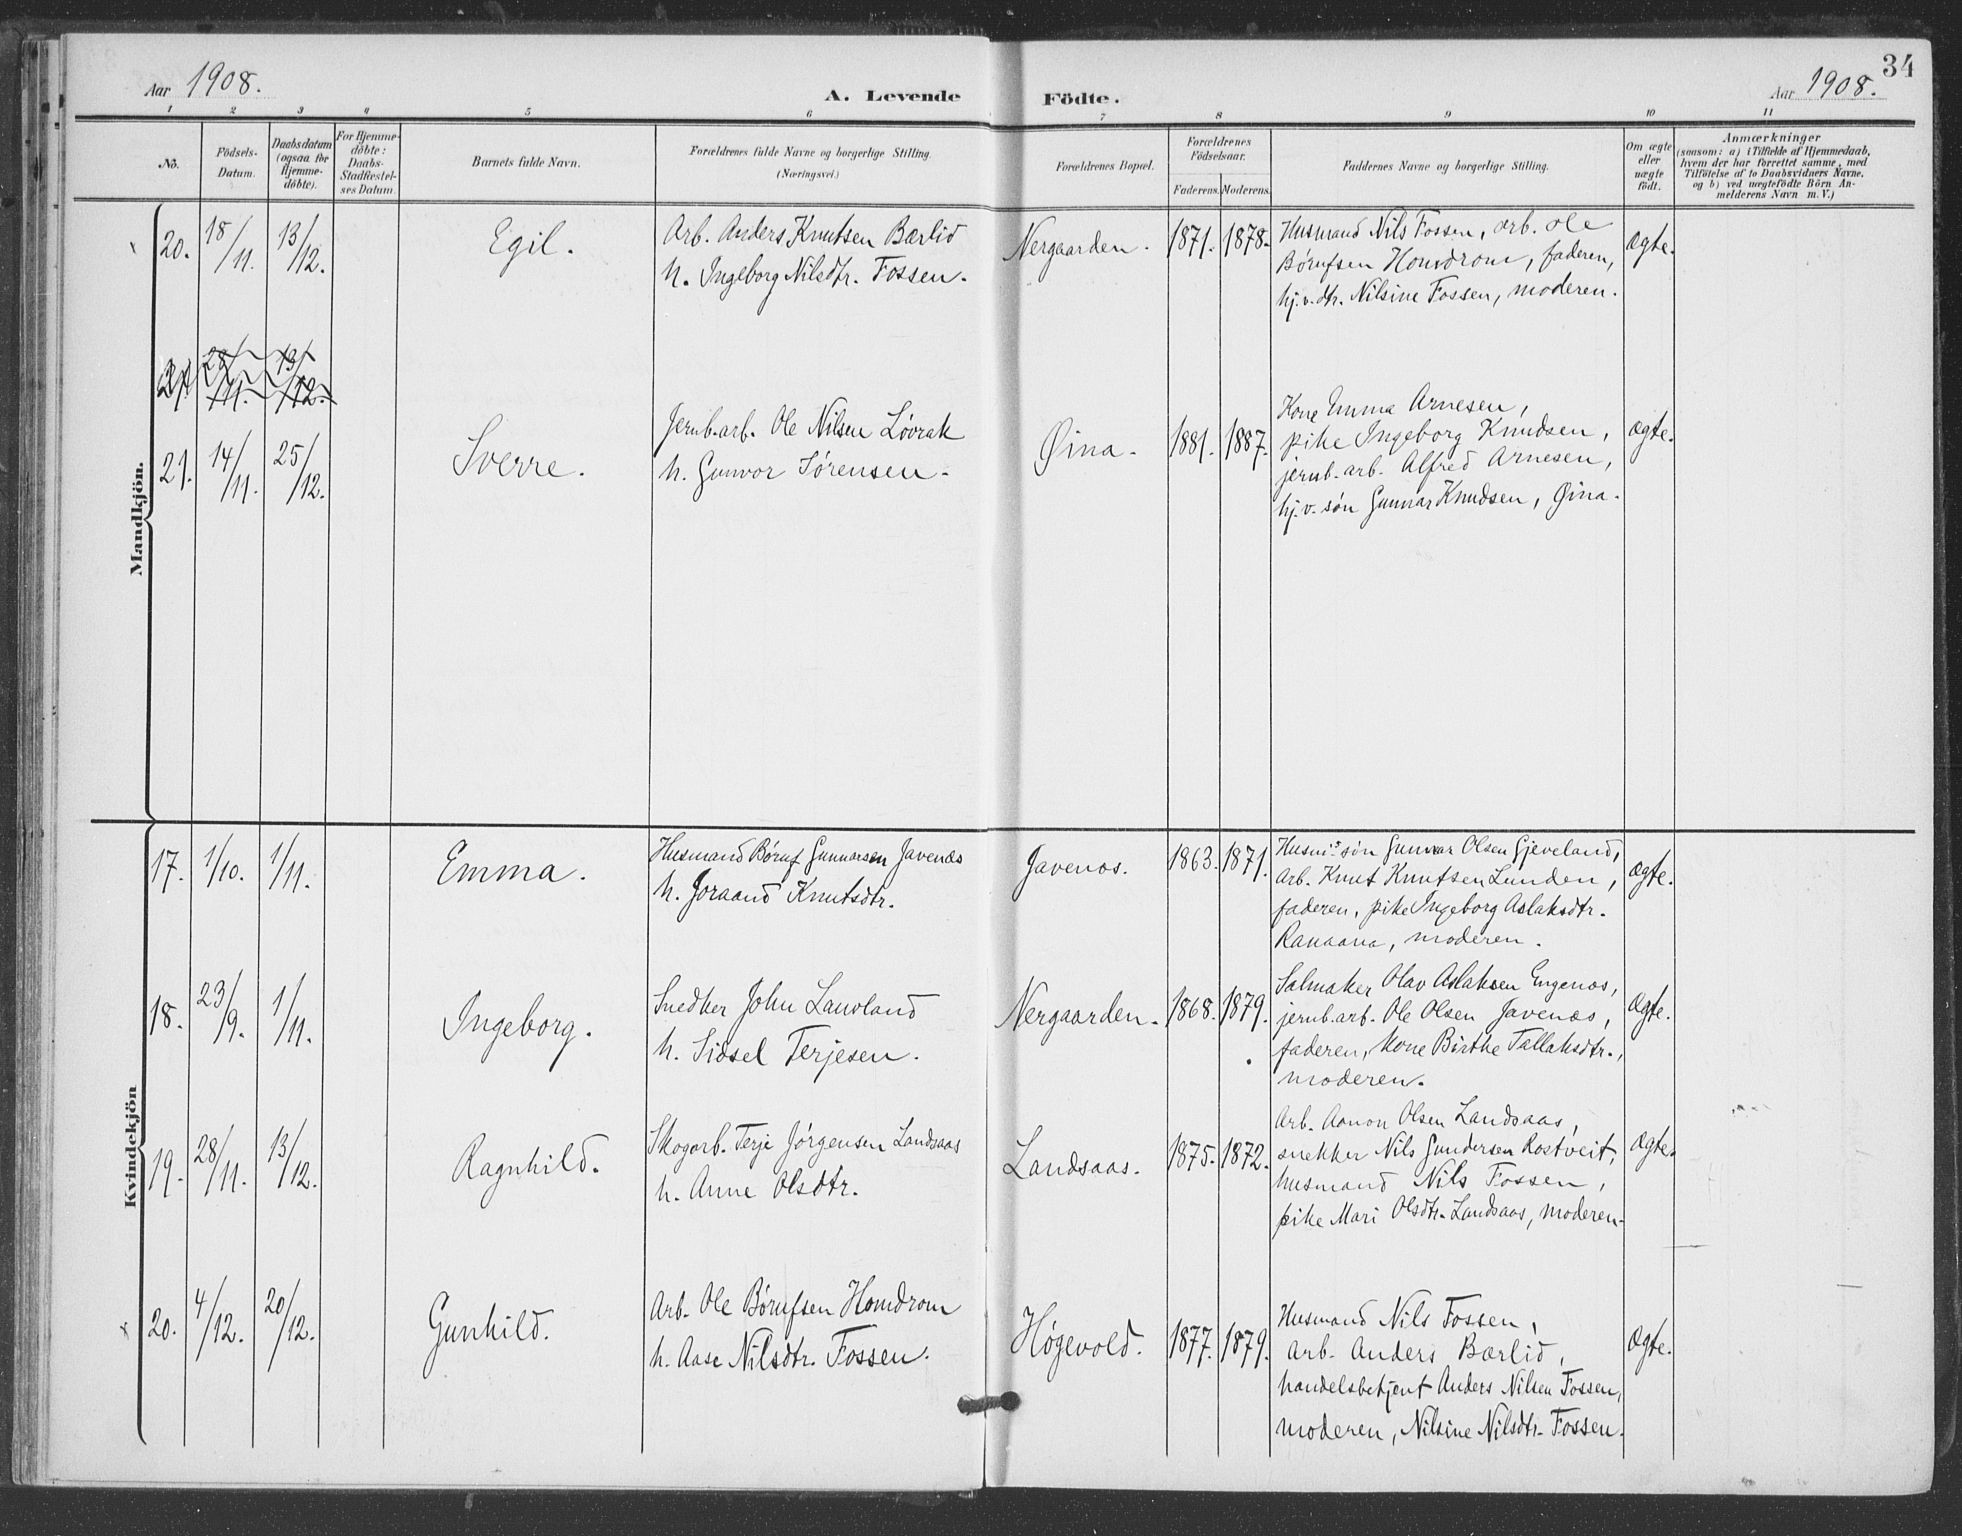 34
Aar 1908. A. Levende Födte. Aar 1908.
1 2 3 4 5 6 7 8 9 10 11
No. Födsels-Datum. Daabsdatum (ogsaa for Hjemme-döbte). For Hjemme-döbte: Daabs-Stadfæstel-ses Datum. Barnets fulde Navn. Forældrenes fulde Navne og borgerlige Stilling. (Næringsvei.) Forældrenes Bopæl. Forældrenes Födselsaar. Faderens. Moderens. Faddernes Navne og borgerlige Stilling. Om ægte eller uægte født. Anmærkninger
(saasom: a) i Tilfælde af Hjemmedaab, hvem der har forrettet samme, med Tilföielse af to Daabsvidners Navne, og b) ved uægtefödte Börn An-melderens Navn m. V.)
Mandkjön.
20. 18/11. 13/12. Egil. Arb. Anders Knutsen Bærlid
h. Ingeborg Nilsdtr. Fossen. Nergaarden. 1871. 1878. Husmand Nils Fossen, arb. Ole
Børufsen Homdrom, faderen,
hj.v.dtr. Nilsine Fossen, moderen. Ægte.
21. 28/11. 13/12.
21. 14/11. 25/12. Sverre. Jernb.arb. Ole Nilsen Løvrak
h. Gunvor Sørensen. Øina. 1881. 1887. Kone Emma Arnesen,
pike Ingeborg Knudsen,
jernb.arb. Alfred Arnesen,
hj.v. søn Gunnar Knudsen, Øina. Ægte.
Kvindekjön
17. 1/10. 1/11. Emma. Husmand Børuf Gunnarsen Javenæs
h. Joraand Knutsdtr. Javenæs. 1863. 1871. Husm's søn Gunnar Olsen Gjeveland,
Arb. Knut Knutsen Lunden,
faderen, pike Ingeborg Aslaksdtr.
Ranaana, moderen. Ægte.
18. 23/9. 1/11. Ingeborg. Snedker John Lauvland
h. Sidsel Terjesen. Nergaarden. 1868. 1879. Salmaker Olav Aslaksen Engenæs,
jernb.arb. Ole Olsen Javenæs,
faderen, kone Birthe Tallaksdtr.,
moderen. Ægte.
19. 28/11. 13/12. Ragnhild. Skogarb. Terje Jørgensen Landsaas
h. Anne Olsdtr. Landsaas. 1875. 1872. Arb. Aanon Olsen Landsaas,
snekker Nils Gundersen Rostveit,
husmand Nils Fossen,
pike Mari Olsdtr. Landsaas, moderen. Ægte.
20. 4/12. 20/12. Gunhild. Arb. Ole Børufsen Homdrom
h. Aase Nilsdtr. Fossen. Høgevold. 1877. 1879. Husmand Nils Fossen,
Arb. Anders Bærlid,
handelsbetjent Anders Nilsen Fossen,
moderen, Nilsine Nilsdtr. Fossen. Ægte.